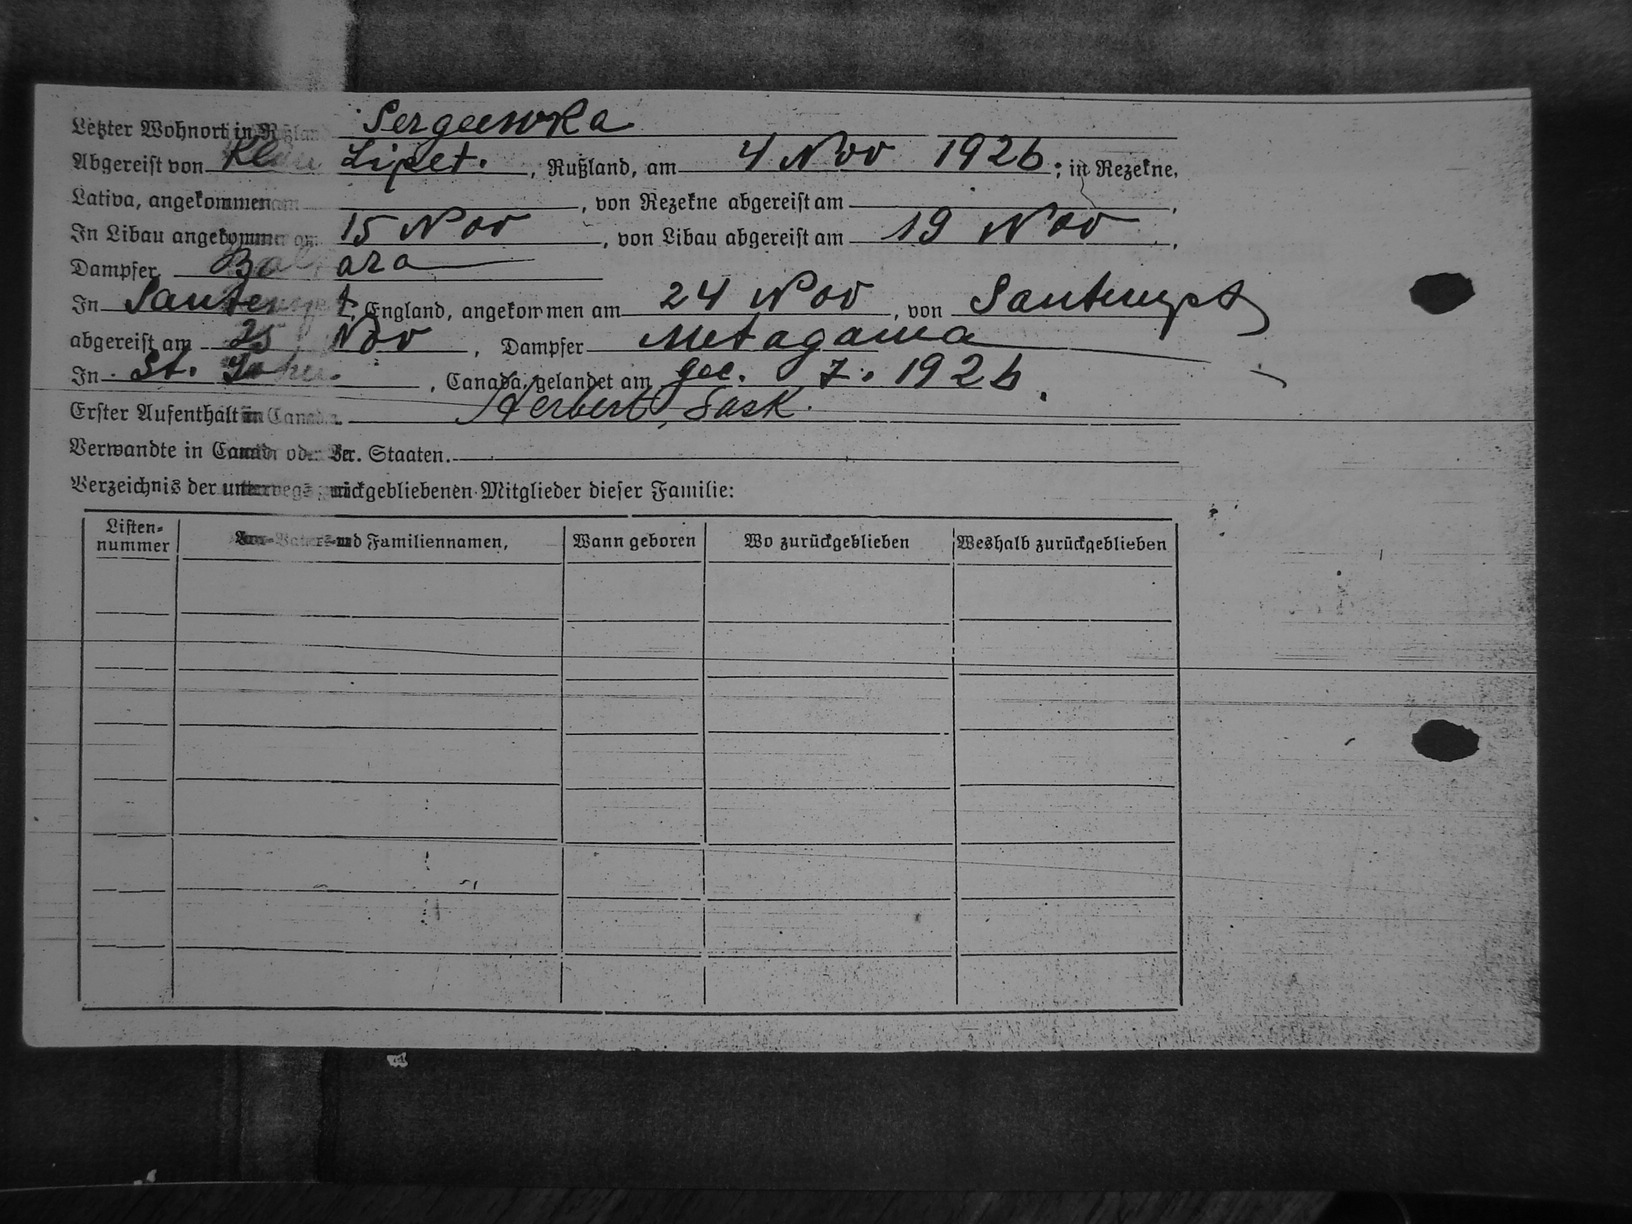 Letzter Wohnort in Rußland Sergeewka
Abgereist von Klein Lipet. , Rußland, am 4 Nov 1926 ; in Rezekne,
Lativa, angekommen am , von Rezekne abgereist am ,
In Libau angekommen am 15 Nov , von Libau abgereist am 19 Nov ,
Dampfer
In , England, angekommen am 24 Nov , von Sautempt
abgereist am 25 Nov , Dampfer Metagama
In St. John , Canada, gelandet am 7. 1926
Erster Aufenthalt in Canada. Herbert, Sask.
Verwandte in Canada oder Ver. Staaten.
Verzeichnis der unterwegs zurückgebliebenen Mitglieder dieser Familie:
Listen-
nummer
Vor- Vaters- und Familiennamen, Wann geboren Wo zurückgeblieben Weshalb zurückgeblieben